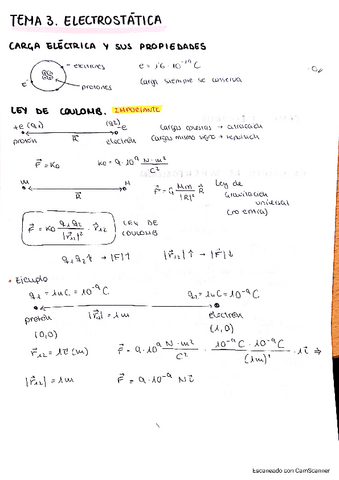 TEMA 3. ELECTROSTÁTICA
CARGA ELÉCTRICA Y SUS PROPIEDADES
electrones e = 1'6 · 10⁻¹⁹ C
e⁻ protones Carga siempre se conserva
LEY DE COULOMB. IMPORTANTE
+e (q1) (q2) -e Cargas opuestas → atracción
protón R electrón Cargas mismo signo → repulsión
F = K0 K0 = 9·10⁹ N·m²/C²
m M F = G Mm/|R|² R Ley de
R Gravitación
universal
F = K0 q1 q2/|r12|² · r12 LEY DE
COULOMB
q1 q2 ↑ → |F| ↑ |r12| ↑ → |F| ↓
• Ejemplo
q1 = 1nC = 10⁻⁹ C q2 = 1nC = 10⁻⁹ C
protón |r12| = 1m electrón
(0,0) (1,0)
r12 = 1i (m) F = 9·10⁹ N·m²/C² · 10⁻⁹ C · 10⁻⁹ C/(1m)² · 1i ⇒
|r12| = 1m F = 9·10⁻⁹ N i
Escaneado con CamScanner